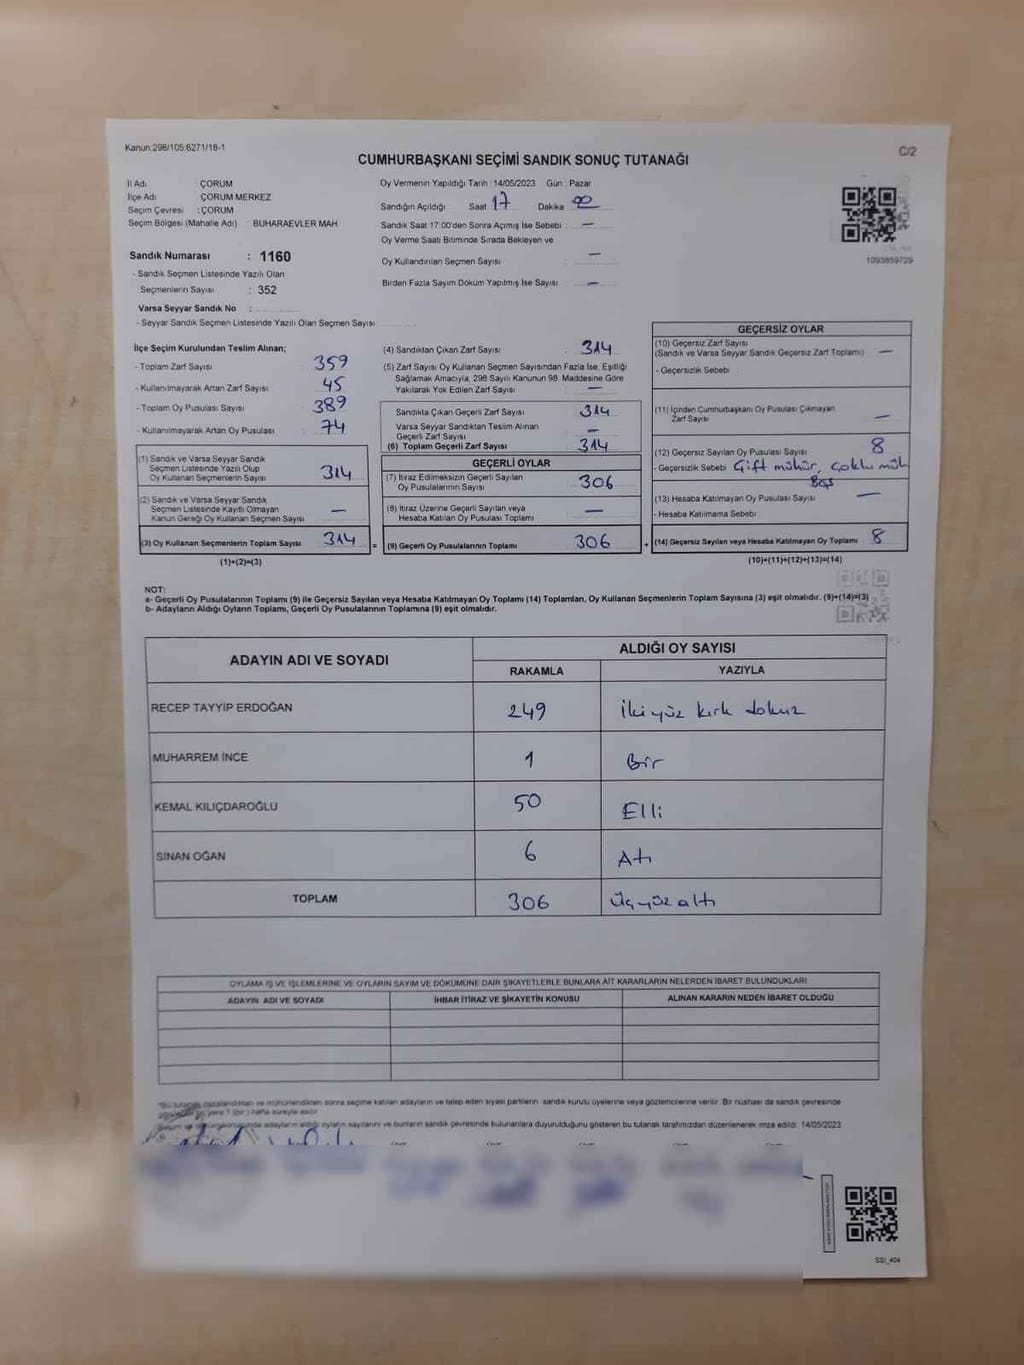 Kanun:298/105;6271/18-1
C/2
CUMHURBAŞKANI SEÇİMİ SANDIK SONUÇ TUTANAĞI
İl Adı ÇORUM
İlçe Adı ÇORUM MERKEZ
Seçim Çevresi :ÇORUM
Seçim Bölgesi (Mahalle Adı) : BUHARAEVLER MAH
Sandık Numarası : 1160
- Sandık Seçmen Listesinde Yazılı Olan
Seçmenlerin Sayısı : 352
Varsa Seyyar Sandık No :
- Seyyar Sandık Seçmen Listesinde Yazılı Olan Seçmen Sayısı
Oy Vermenin Yapıldığı Tarih :14/05/2023 Gün : Pazar
Sandığın Açıldığı Saat 17 Dakika 00
Sandık Saat 17:00'den Sonra Açımış İse Sebebi —
Oy Verme Saati Bitiminde Sırada Bekleyen ve
Oy Kullandırılan Seçmen Sayısı : —
Birden Fazla Sayım Döküm Yapılmış İse Sayısı : —
1093859729
İlçe Seçim Kurulundan Teslim Alınan;
- Toplam Zarf Sayısı : 359
- Kullanılmayarak Artan Zarf Sayısı : 45
- Toplam Oy Pusulası Sayısı : 389
- Kullanılmayarak Artan Oy Pusulası : 74
(1) Sandık ve Varsa Seyyar Sandık
Seçmen Listesinde Yazılı Olup
Oy Kullanan Seçmenlerin Sayısı 314
(2) Sandık ve Varsa Seyyar Sandık
Seçmen Listesinde Kayıtlı Olmayan
Kanun Gereği Oy Kullanan Seçmen Sayısı —
(3) Oy Kullanan Seçmenlerin Toplam Sayısı 314 =
(1)+(2)=(3)
(4) Sandıktan Çıkan Zarf Sayısı : 314
(5) Zarf Sayısı Oy Kullanan Seçmen Sayısından Fazla İse, Eşitliği
Sağlamak Amacıyla, 298 Sayılı Kanunun 98. Maddesine Göre
Yakılarak Yok Edilen Zarf Sayısı : —
Sandıkta Çıkan Geçerli Zarf Sayısı : 314
Varsa Seyyar Sandıktan Teslim Alınan
Geçerli Zarf Sayısı : —
(6) Toplam Geçerli Zarf Sayısı : 314
GEÇERLİ OYLAR
(7) İtiraz Edilmeksizin Geçerli Sayılan
Oy Pusulalarının Sayısı 306
(8) İtiraz Üzerine Geçerli Sayılan veya
Hesaba Katılan Oy Pusulası Toplamı —
(9) Geçerli Oy Pusulalarının Toplamı 306 +
GEÇERSİZ OYLAR
(10) Geçersiz Zarf Sayısı
(Sandık ve Varsa Seyyar Sandık Geçersiz Zarf Toplamı) : —
- Geçersizlik Sebebi
(11) İçinden Cumhurbaşkanı Oy Pusulası Çıkmayan
Zarf Sayısı —
(12) Geçersiz Sayılan Oy Pusulası Sayısı : 8
- Geçersizlik Sebebi Çift mühür, çoklu müh
Boş
(13) Hesaba Katılmayan Oy Pusulası Sayısı : —
- Hesaba Katılmama Sebebi
(14) Geçersiz Sayılan veya Hesaba Katılmayan Oy Toplamı 8
(10)+(11)+(12)+(13)=(14)
NOT:
a- Geçerli Oy Pusulalarının Toplamı (9) ile Geçersiz Sayılan veya Hesaba Katılmayan Oy Toplamı (14) Toplamları, Oy Kullanan Seçmenlerin Toplam Sayısına (3) eşit olmalıdır. (9)+(14)=(3)
b- Adayların Aldığı Oyların Toplamı, Geçerli Oy Pusulalarının Toplamına (9) eşit olmalıdır.
ADAYIN ADI VE SOYADI ALDIĞI OY SAYISI
RAKAMLA YAZIYLA
RECEP TAYYİP ERDOĞAN 249 İki yüz kırk dokuz
MUHARREM İNCE 1 Bir
KEMAL KILIÇDAROĞLU 50 Elli
SİNAN OĞAN 6 Altı
TOPLAM 306 Üçyüz altı
OYLAMA İŞ VE İŞLEMLERİNE VE OYLARIN SAYIM VE DÖKÜMÜNE DAİR ŞİKAYETLERLE BUNLARA AİT KARARLARIN NELERDEN İBARET BULUNDUKLARI
ADAYIN ADI VE SOYADI İHBAR İTİRAZ VE ŞİKAYETİN KONUSU ALINAN KARARIN NEDEN İBARET OLDUĞU
mühürlendikten sonra seçime katılan adayların ve talep eden siyasi partilerin sandık kurulu üyelerine veya gözlemcilerine verilir. Bir nüshası da sandık çevresinde
yere 1 (bir) hafta süreyle asılır.
adayların aldığı oyların sayılarını ve bunların sandık çevresinde bulunanlara duyurulduğunu gösteren bu tutanak tarafımızdan düzenlenerek imza edildi. 14/05/2023
SSI_404